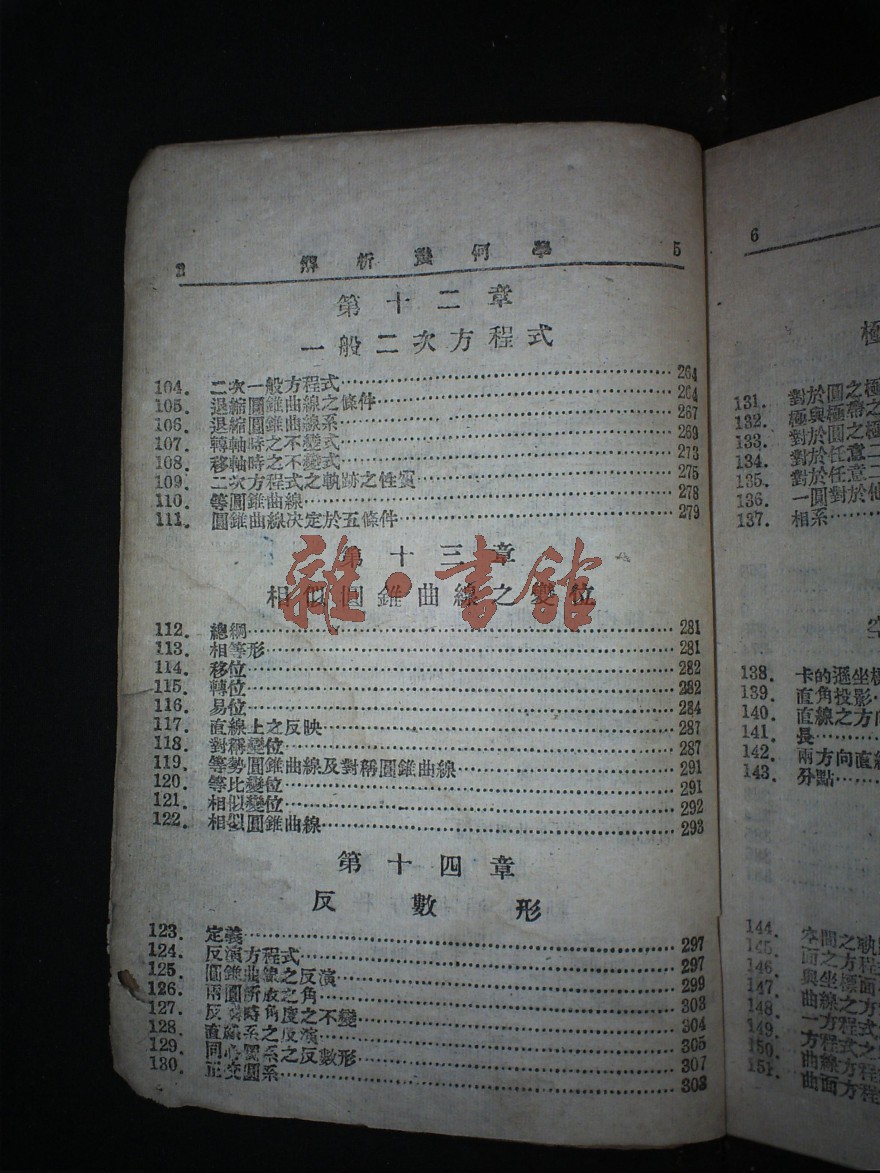 解析幾何學 5
第十二章
一般二次方程式
104. 二次一般方程式 264
105. 退縮圓錐曲線之條件 264
106. 退縮圓錐曲線系 267
107. 轉軸時之不變式 269
108. 移軸時之不變式 273
109. 二次方程式之軌跡之性質 275
110. 等圓錐曲線 278
111. 圓錐曲線决定於五條件 279
第十三章
相似圓錐曲線之變位
雜·書館
112. 總綱 281
113. 相等形 281
114. 移位 282
115. 轉位 282
116. 易位 284
117. 直線上之反映 287
118. 對稱變位 287
119. 等勢圓錐曲線及對稱圓錐曲線 291
120. 等比變位 291
121. 相似變位 292
122. 相似圓錐曲線 293
第十四章
反數形
123. 定義 297
124. 反演方程式 297
125. 圓錐曲線之反演 299
126. 兩圓所成之角 303
127. 反演時角度之不變 304
128. 直線系之反演 305
129. 同心圓系之反數形 307
130. 正交圓系 308
6
極
131. 對於圓之極
132. 極與極帶之
133. 對於圓之極
134. 對於任意二
135. 對於任意二
136. 一圓對於他
137. 相系
空
138. 卡的遜坐標
139. 直角投影
140. 直線之方向
141. 長
142. 兩方向直線
143. 分點
144. 空間之軌
145. 面之方程
146. 與坐標面
147. 曲線之方
148. 一方程式
149. 方程式之
150. 曲線方程
151. 曲面方程